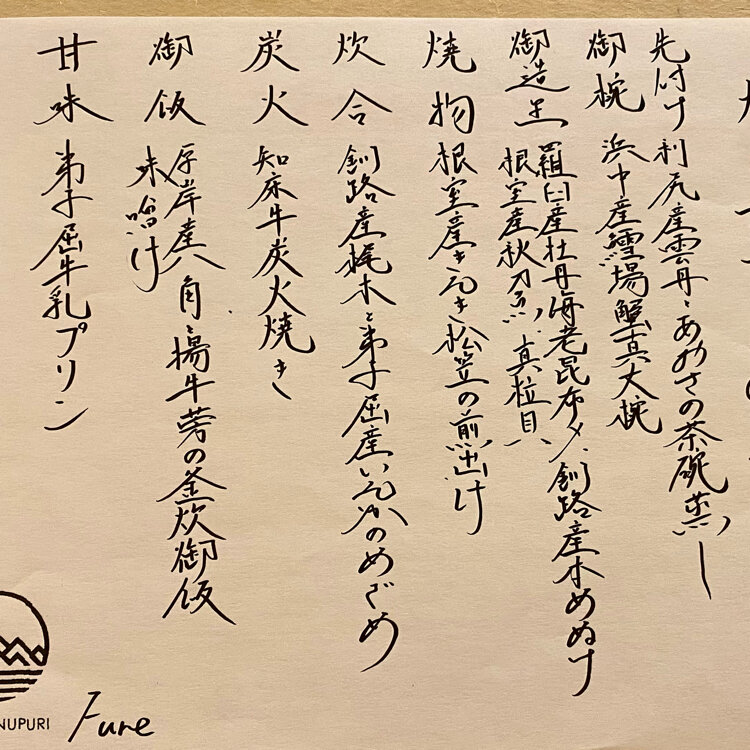 先付け 利尻産雲丹とあおさの茶碗蒸し
御椀 浜中産鱈場蟹真丈椀
御造里 羅臼産牡丹海老昆布〆、釧路産本めぬけ
根室産秋刀魚、真粒貝
焼物 根室産きんき松笠の煎出汁
炊合 釧路産梶木と弟子屈産いんかのめざめ
炭火 知床牛炭火焼き
御飯 厚岸産八角と揚牛蒡の釜炊御飯
味噌汁
甘味 弟子屈牛乳プリン
NUPURI